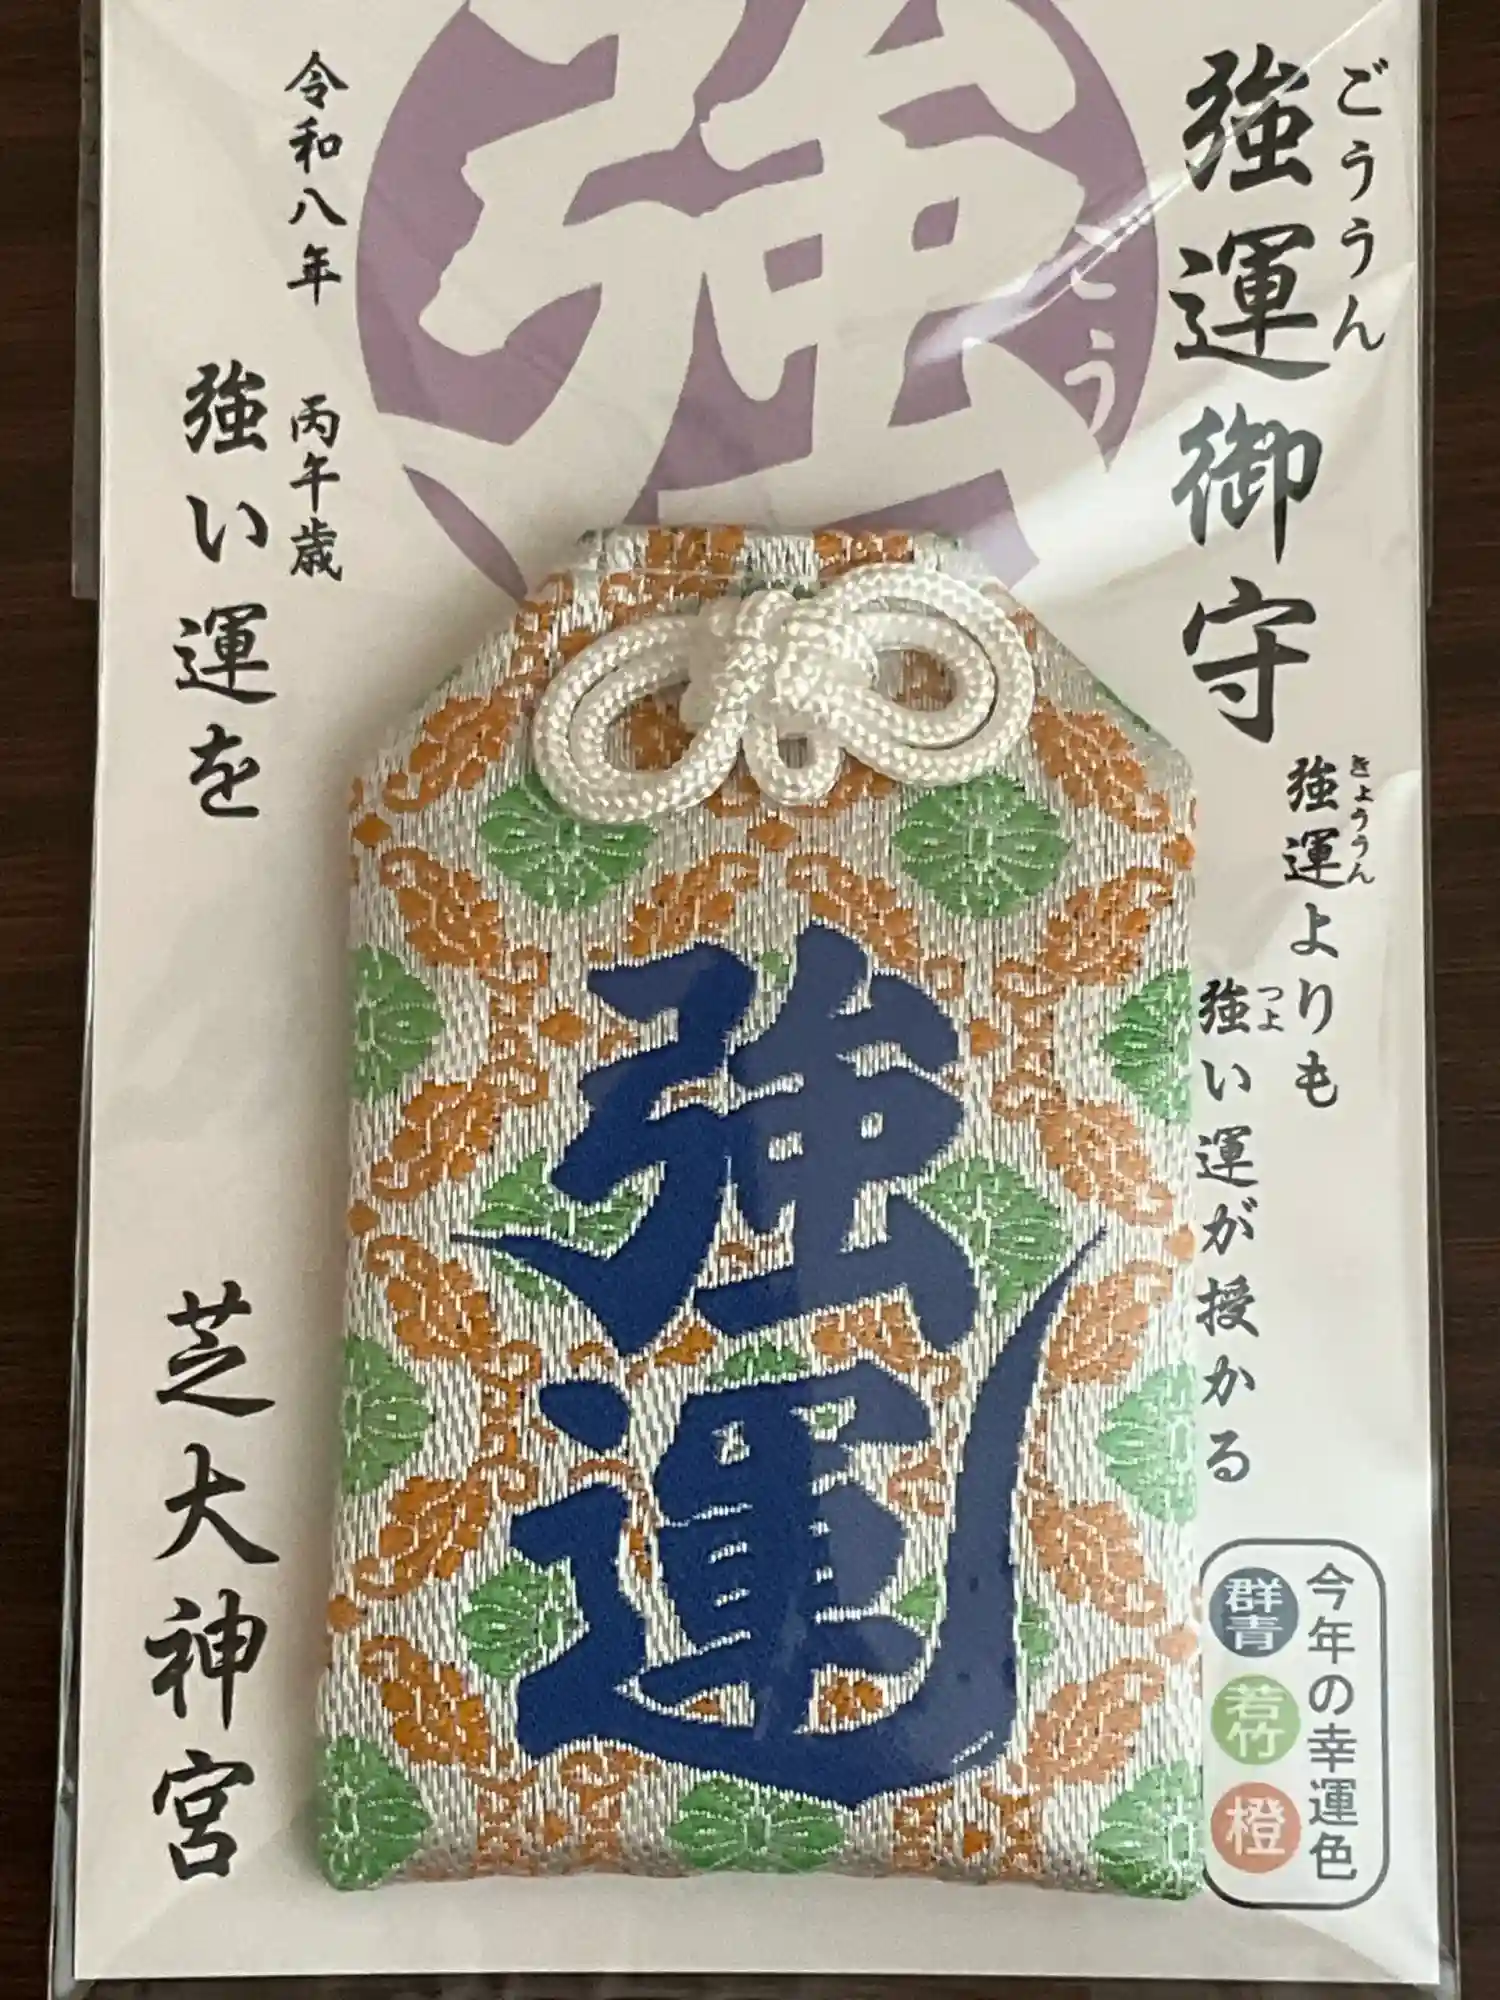 強運御守
ごううん
強運よりも
きょううん
強い運が授かる
つよ
今年の幸運色
群青
若竹
橙
強
ごう
強運
令和八年 丙午歳
強い運を
芝大神宮